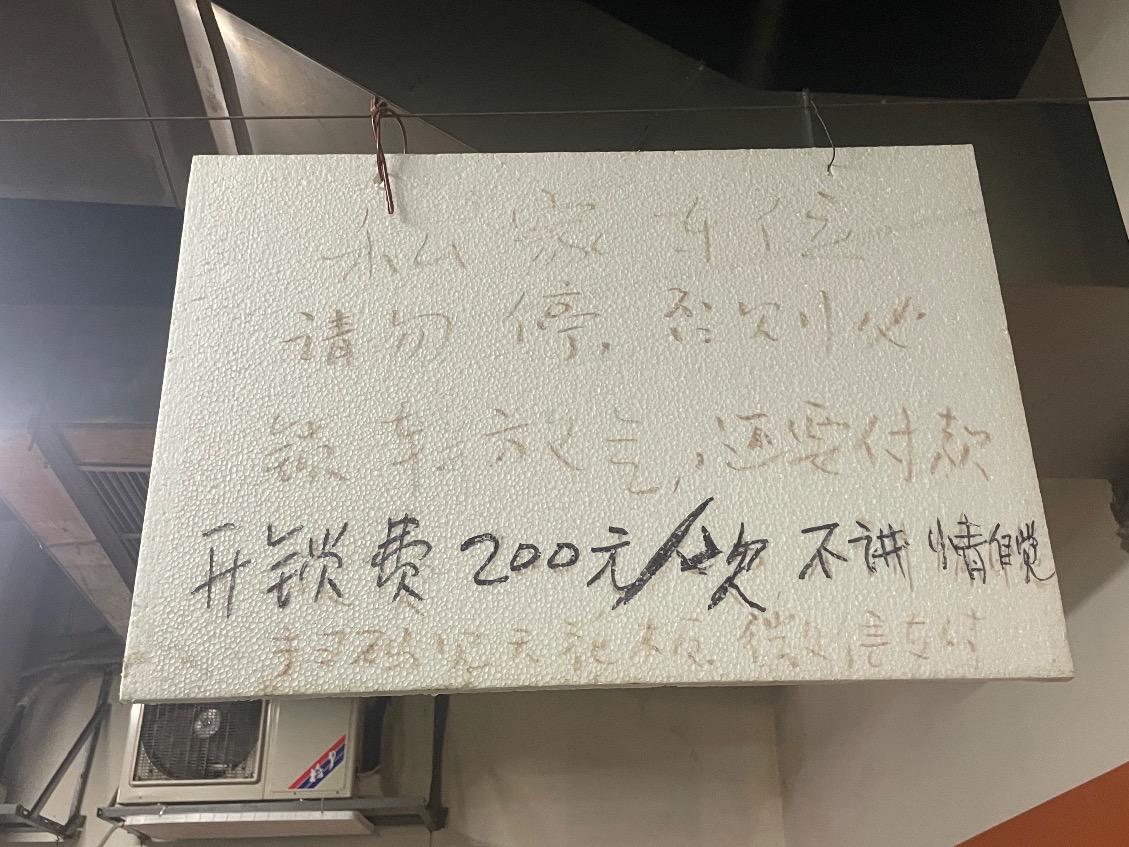 私家车位
请勿停,否则必
锁车放气,还要付款
开锁费200元/次 不讲情自觉
扫码 微信支付